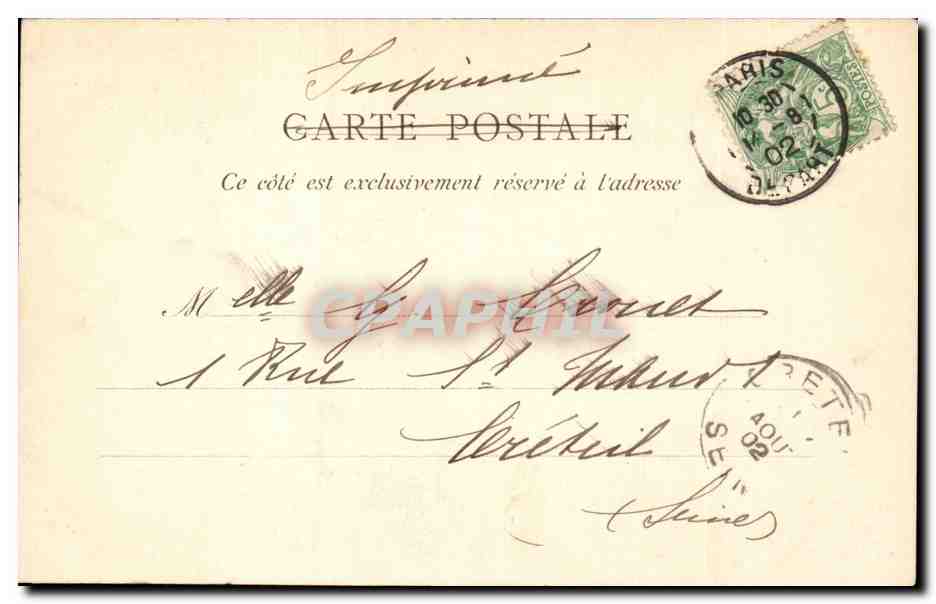 Imprimé
CARTE POSTALE
Ce côté est exclusivement réservé à l'adresse
PARIS
10 30
1 -8
02
DEPART
POSTES
Melle G.
CPAPHIL
1 Rue St Maur
Créteil
(Seine)
CRETE
AOU
02
SE